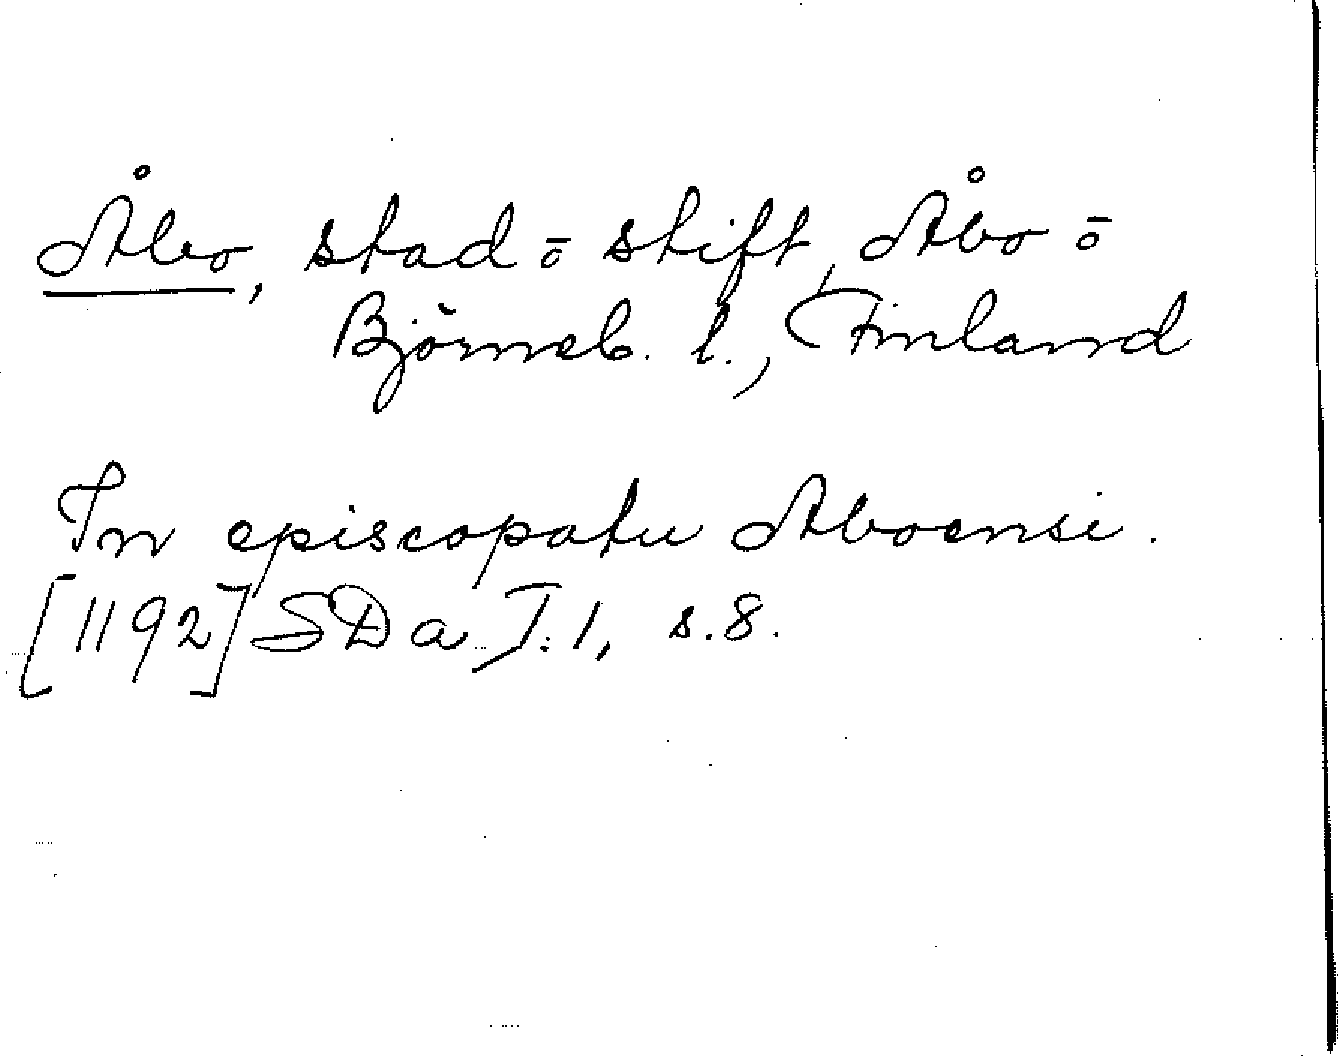 Åbo, stad ō stift, Åbo ō
Björneb. l., Finland
In episcopatu Aboensi.
[1192] SDa I:1, s.8.